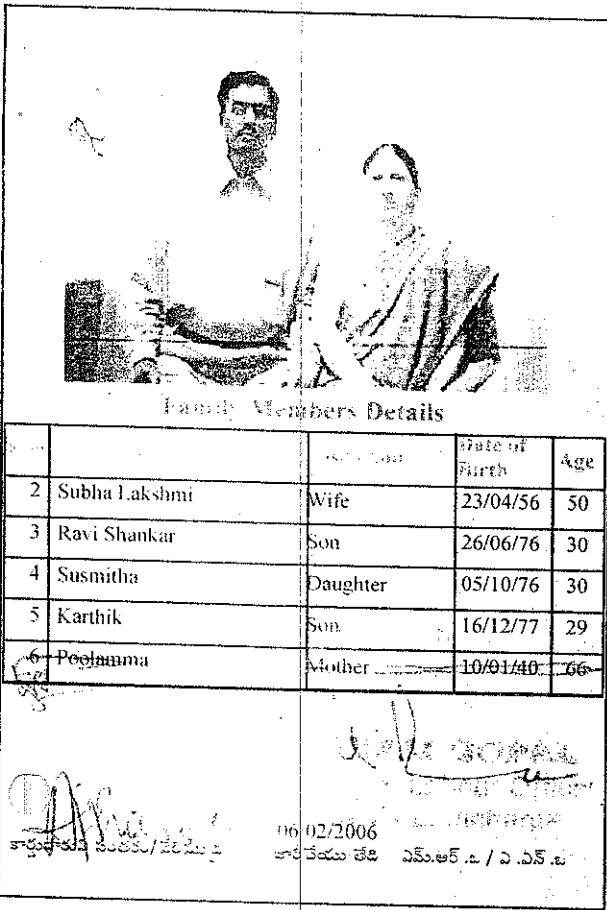 Family Members Details
Date of Birth Age
2 Subha Lakshmi Wife 23/04/56 50
3 Ravi Shankar Son 26/06/76 30
4 Susmitha Daughter 05/10/76 30
5 Karthik Son 16/12/77 29
6 Poolamma Mother 10/01/40 66
GOPAL
06/02/2006
జారీ చేయు తేది ఎమ్.ఆర్.ఒ / ఎ.ఎస్.ఒ